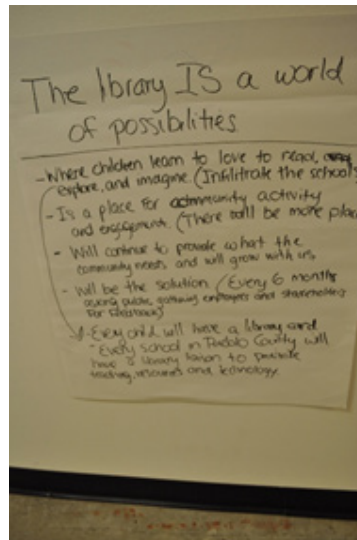 The library IS a world
of possibilities
- Where children learn to love to read,
explore, and imagine. (Infiltrate the schools
- Is a place for community activity
and engagement. (There will be more plac
- Will continue to provide what the
community needs and will grow with us
- Will be the solution (Every 6 months
asking public, gathering employees and stakeholders
for feedback)
- Every child will have a library and
- Every school in Pueblo County will
have a library liaison to provide
training, resources and technology.